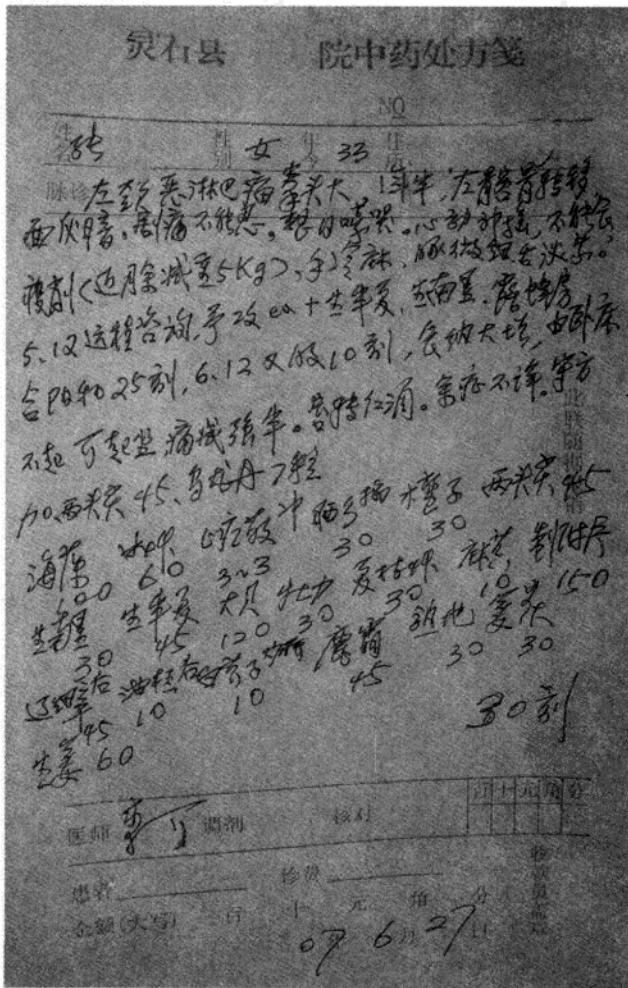 灵石县 院中药处方笺
NO
姓名 张 性别 女 年令 33 住所
脉诊 左颈恶淋巴瘤拳头大 1年半,左髂骨转移,
面灰暗。剧痛不能忍,整日嚎哭。心动神摇,不能食,
瘦削(近月余减重5Kg)、手冷麻、脉微细舌淡紫。
5.12远程咨询,予攻ca+生半夏、生南星、露蜂房
合阳和25剂,6.12又服10剂,食纳大增,由卧床
不起可起坐,痛减强半。舌转红润。余症不详。守方
加两头尖45、
海藻 止痉散 冲 木鳖子 两头尖 45
100 60 3~3 30 30
生南星 生半夏 大贝 牡力 夏枯球 麻黄 制附片
30 45 120 30 30 10 150
辽细辛 油桂 芥子 鹿霜 熟地 姜炭
45 10 10 45 30 30
生姜 60
30剂
医师 李 调剂 核对 百十元角分
患者 诊费
金额(大写) 百 十 元 角 分
07年 6月 27日